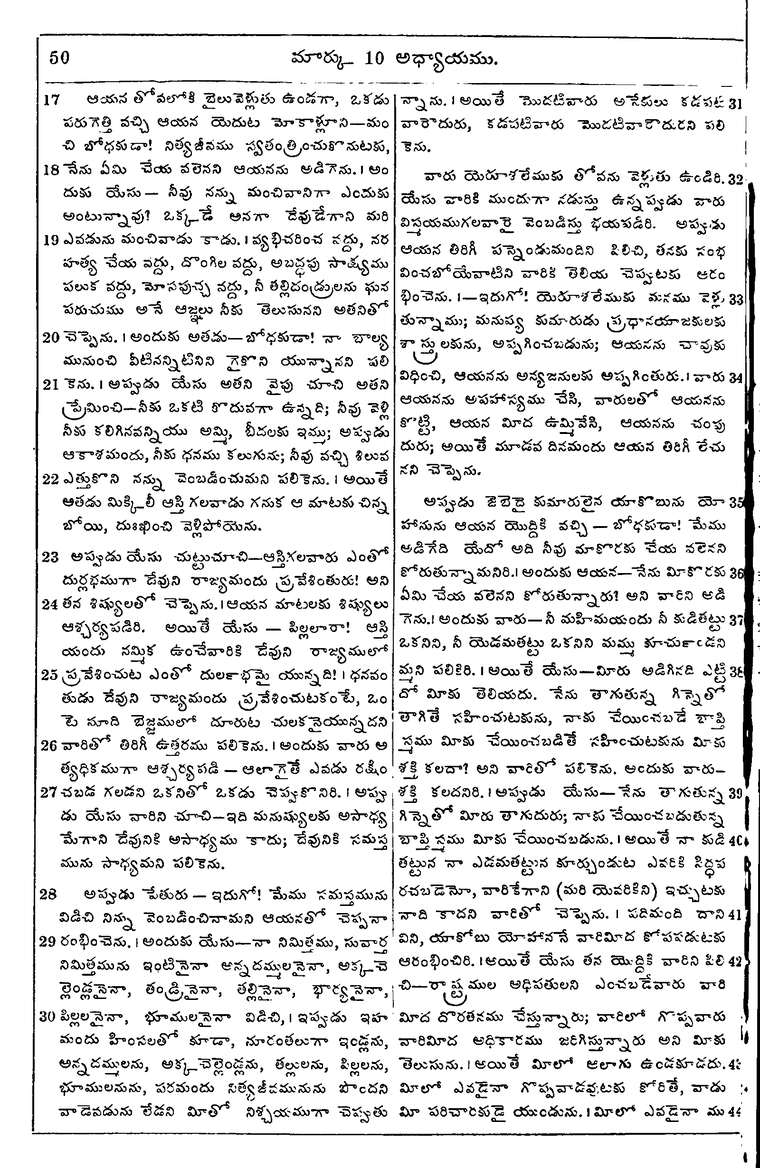 50
మార్కు 10 అధ్యాయము.
17 ఆయన తోవలోకి బైలువెళ్లుతు ఉండగా, ఒకడు
పరుగెత్తి వచ్చి ఆయన యెదుట మోకాళ్లూని—మం
చి బోధకుడా! నిత్యజీవము స్వతంత్రించుకొనుటకు,
18 నేను ఏమి చేయ వలెనని ఆయనను అడిగెను. । అం
దుకు యేసు — నీవు నన్ను మంచివానిగా ఎందుకు
అంటున్నావు? ఒక్కడే అనగా దేవుడేగాని మరి
19 ఎవడును మంచివాడు కాడు. । వ్యభిచరించ వద్దు, నర
హత్య చేయ వద్దు, దొంగిల వద్దు, అబద్ధపు సాక్ష్యము
పలుక వద్దు, మోసపుచ్చ వద్దు, నీ తల్లిదండ్రులను ఘన
పరుచుము అనే ఆజ్ఞలు నీకు తెలుసునని అతనితో
20 చెప్పెను. । అందుకు అతడు—బోధకుడా! నా బాల్య
మునుంచి వీటినన్నిటినిని గైకొని యున్నానని పలి
21 కెను. । అప్పుడు యేసు అతని వైపు చూచి అతని
ప్రేమించి—నీకు ఒకటి కొదువగా ఉన్నది; నీవు వెళ్లి
నీకు కలిగినవన్నియు అమ్మి, బీదలకు ఇమ్ము; అప్పుడు
ఆకాశమందు, నీకు ధనము కలుగును; నీవు వచ్చి శిలువ
22 ఎత్తుకొని నన్ను వెంబడించుమని పలికెను. । అయితే
ఆతడు మిక్కిలీ ఆస్తి గలవాడు గనుక ఆ మాటకు చిన్న
బోయి, దుఃఖించి వెళ్లిపోయెను.
23 అప్పుడు యేసు చుట్టుచూచి—ఆస్తిగలవారు ఎంతో
దుర్లభముగా దేవుని రాజ్యమందు ప్రవేశింతురు! అని
24 తన శిష్యులతో చెప్పెను. । ఆయన మాటలకు శిష్యులు
ఆశ్చర్యపడిరి. అయితే యేసు — పిల్లలారా! ఆస్తి
యందు నమ్మిక ఉంచేవారికి దేవుని రాజ్యములో
25 ప్రవేశించుట ఎంతో దుర్లభమై యున్నది! । ధనవం
తుడు దేవుని రాజ్యమందు ప్రవేశించుటకంటే, ఒం
టె సూది బెజ్జములో దూరుట చులకనైయున్నదని
26 వారితో తిరిగీ ఉత్తరము పలికెను. । అందుకు వారు అ
త్యధికముగా ఆశ్చర్యపడి — ఆలాగైతే ఎవడు రక్షిం
27 చబడ గలడని ఒకనితో ఒకడు చెప్పుకొనిరి. । అప్పు
డు యేసు వారిని చూచి—ఇది మనుష్యులకు అసాధ్య
మేగాని దేవునికి అసాధ్యము కాదు; దేవునికి సమస్త
మును సాధ్యమని పలికెను.
28 అప్పుడు పేతురు — ఇదుగో! మేము సమస్తమును
విడిచి నిన్ను వెంబడించినామని ఆయనతో చెప్పనా
29 రంభించెను. । అందుకు యేసు—నా నిమిత్తము, సువార్త
నిమిత్తమును ఇంటినైనా అన్నదమ్ములనైనా, అక్క చె
ల్లెండ్లనైనా, తండ్రినైనా, తల్లినైనా, భార్యనైనా,
30 పిల్లలనైనా, భూములనైనా విడిచి, । ఇప్పుడు ఇహ
మందు హింసలతో కూడా, నూరంతలుగా ఇండ్లను,
అన్నదమ్ములను, అక్క చెల్లెండ్లను, తల్లులను, పిల్లలను,
భూములనును, పరమందు నిత్యజీవమునును పొందని
వాడెవడును లేడని మీతో నిశ్చయముగా చెప్పుతు
న్నాను. । అయితే మొదటివారు అనేకులు కడపటి 31
వారౌదురు, కడపటివారు మొదటివారౌదురని పలి
కెను.
వారు యెరూశలేముకు తోవను వెళ్లుతు ఉండిరి. 32
యేసు వారికి ముందుగా నడుస్తు ఉన్నప్పుడు వారు
విస్మయముగలవారై వెంబడిస్తు భయపడిరి. అప్పుడు
ఆయన తిరిగీ పన్నెండుమందిని పిలిచి, తనకు సంభ
వించబోయేవాటిని వారికి తెలియ చెప్పుటకు ఆరం
భించెను. । —ఇదుగో! యెరూశలేముకు మనము వెళ్లు 33
తున్నాము; మనుష్య కుమారుడు ప్రధానయాజకులకు
శాస్త్రులకును, అప్పగించబడును; ఆయనను చావుకు
విధించి, ఆయనను అన్యజనులకు అప్పగింతురు. । వారు 34
ఆయనను అపహాస్యము చేసి, వారులతో ఆయనను
కొట్టి, ఆయన మీద ఉమ్మివేసి, ఆయనను చంపు
దురు; అయితే మూడవ దినమందు ఆయన తిరిగీ లేచు
నని చెప్పెను.
అప్పుడు జెబెదై కుమారులైన యాకోబును యో 35
హానును ఆయన యొద్దికి వచ్చి — బోధకుడా! మేము
అడిగేది యేదో అది నీవు మాకొరకు చేయ వలెనని
కోరుతున్నామనిరి. । అందుకు ఆయన—నేను మీకొరకు 36
ఏమి చేయ వలెనని కోరుతున్నారు? అని వారిని అడి
గెను. । అందుకు వారు—నీ మహిమయందు నీ కుడితట్టు 37
ఒకనిని, నీ యెడమతట్టు ఒకనిని మమ్ము కూచుండని
మ్మని పలికిరి. । అయితే యేసు—మీరు అడిగినది ఎట్టి 38
దో మీకు తెలియదు. నేను తాగుతున్న గిన్నెతో
తాగితే సహించుటకును, నాకు చేయించబడే బాప్తి
స్మము మీకు చేయించబడితే సహించుటకును మీకు
శక్తి కలదా? అని వారితో పలికెను. అందుకు వారు—
శక్తి కలదనిరి. । అప్పుడు యేసు—నేను తాగుతున్న 39
గిన్నెతో మీరు తాగుదురు; నాకు చేయించబడుతున్న
బాప్తిస్మము మీకు చేయించబడును. । అయితే నా కుడి 40
తట్టున నా ఎడమతట్టున కూర్చుండుట ఎవరికి సిద్ధప
రచబడెమో, వారికేగాని (మరి యెవరికిని) ఇచ్చుటకు
నాది కాదని వారితో చెప్పెను. । పదిమంది దాని 41
విని, యాకోబు యోహాననే వారిమీద కోపపడుటకు
ఆరంభించిరి. । అయితే యేసు తన యొద్దికి వారిని పిలి 42
చి—రాష్ట్రముల అధిపతులని ఎంచబడేవారు వారి
మీద దొరతనము చేస్తున్నారు; వారిలో గొప్పవారు
వారిమీద అధికారము జరిగిస్తున్నారు అని మీకు
తెలుసును. । అయితే మీలో ఆలాగు ఉండకూడదు. 43
మీలో ఎవడైనా గొప్పవాడవుటకు కోరితే, వాడు
మీ పరిచారకుడై యుండును. । మీలో ఎవడైనా ము 44